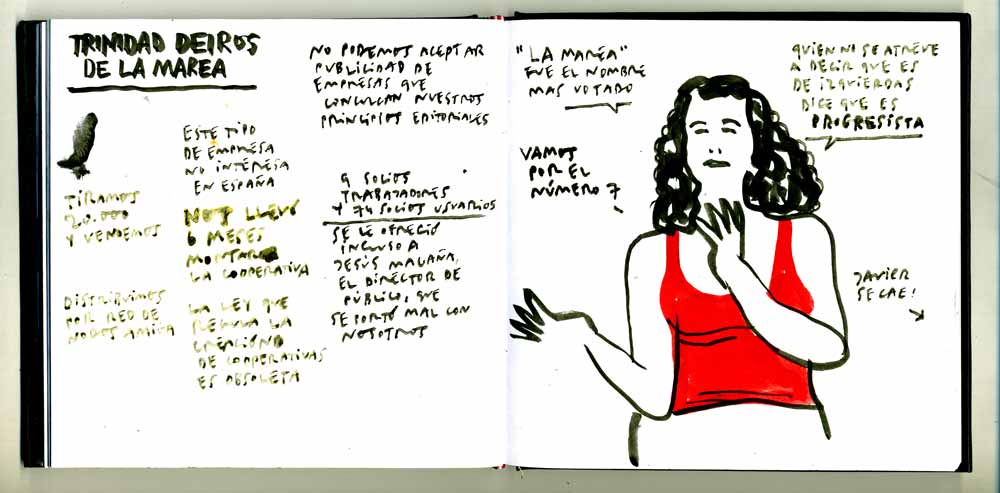 TRINIDAD DEIROS
DE LA MAREA
TIRAMOS
20.000
Y VENDEMOS
DISTRIBUIMOS
POR RED DE
NODOS AMIGA
ESTE TIPO
DE EMPRESA
NO INTERESA
EN ESPAÑA
NOS LLEVÓ
6 MESES
MONTAR
LA COOPERATIVA
LA LEY QUE
REGULA LA
CREACIÓN
DE COOPERATIVAS
ES OBSOLETA
NO PODEMOS ACEPTAR
PUBLICIDAD DE
EMPRESAS QUE
CONCULCAN NUESTROS
PRINCIPIOS EDITORIALES
9 SOCIOS
TRABAJADORES
Y 74 SOCIOS USUARIOS
SE LE OFRECIÓ
INCLUSO A
JESÚS MAGAÑA,
EL DIRECTOR DE
PÚBLICO, QUE
SE PORTÓ MAL CON
NOSOTROS
"LA MAREA"
FUE EL NOMBRE
MAS VOTADO
VAMOS
POR EL
NÚMERO 7
QUIEN NI SE ATREVE
A DECIR QUE ES
DE IZQUIERDAS
DICE QUE ES
PROGRESISTA
JAVIER
SE CAE!